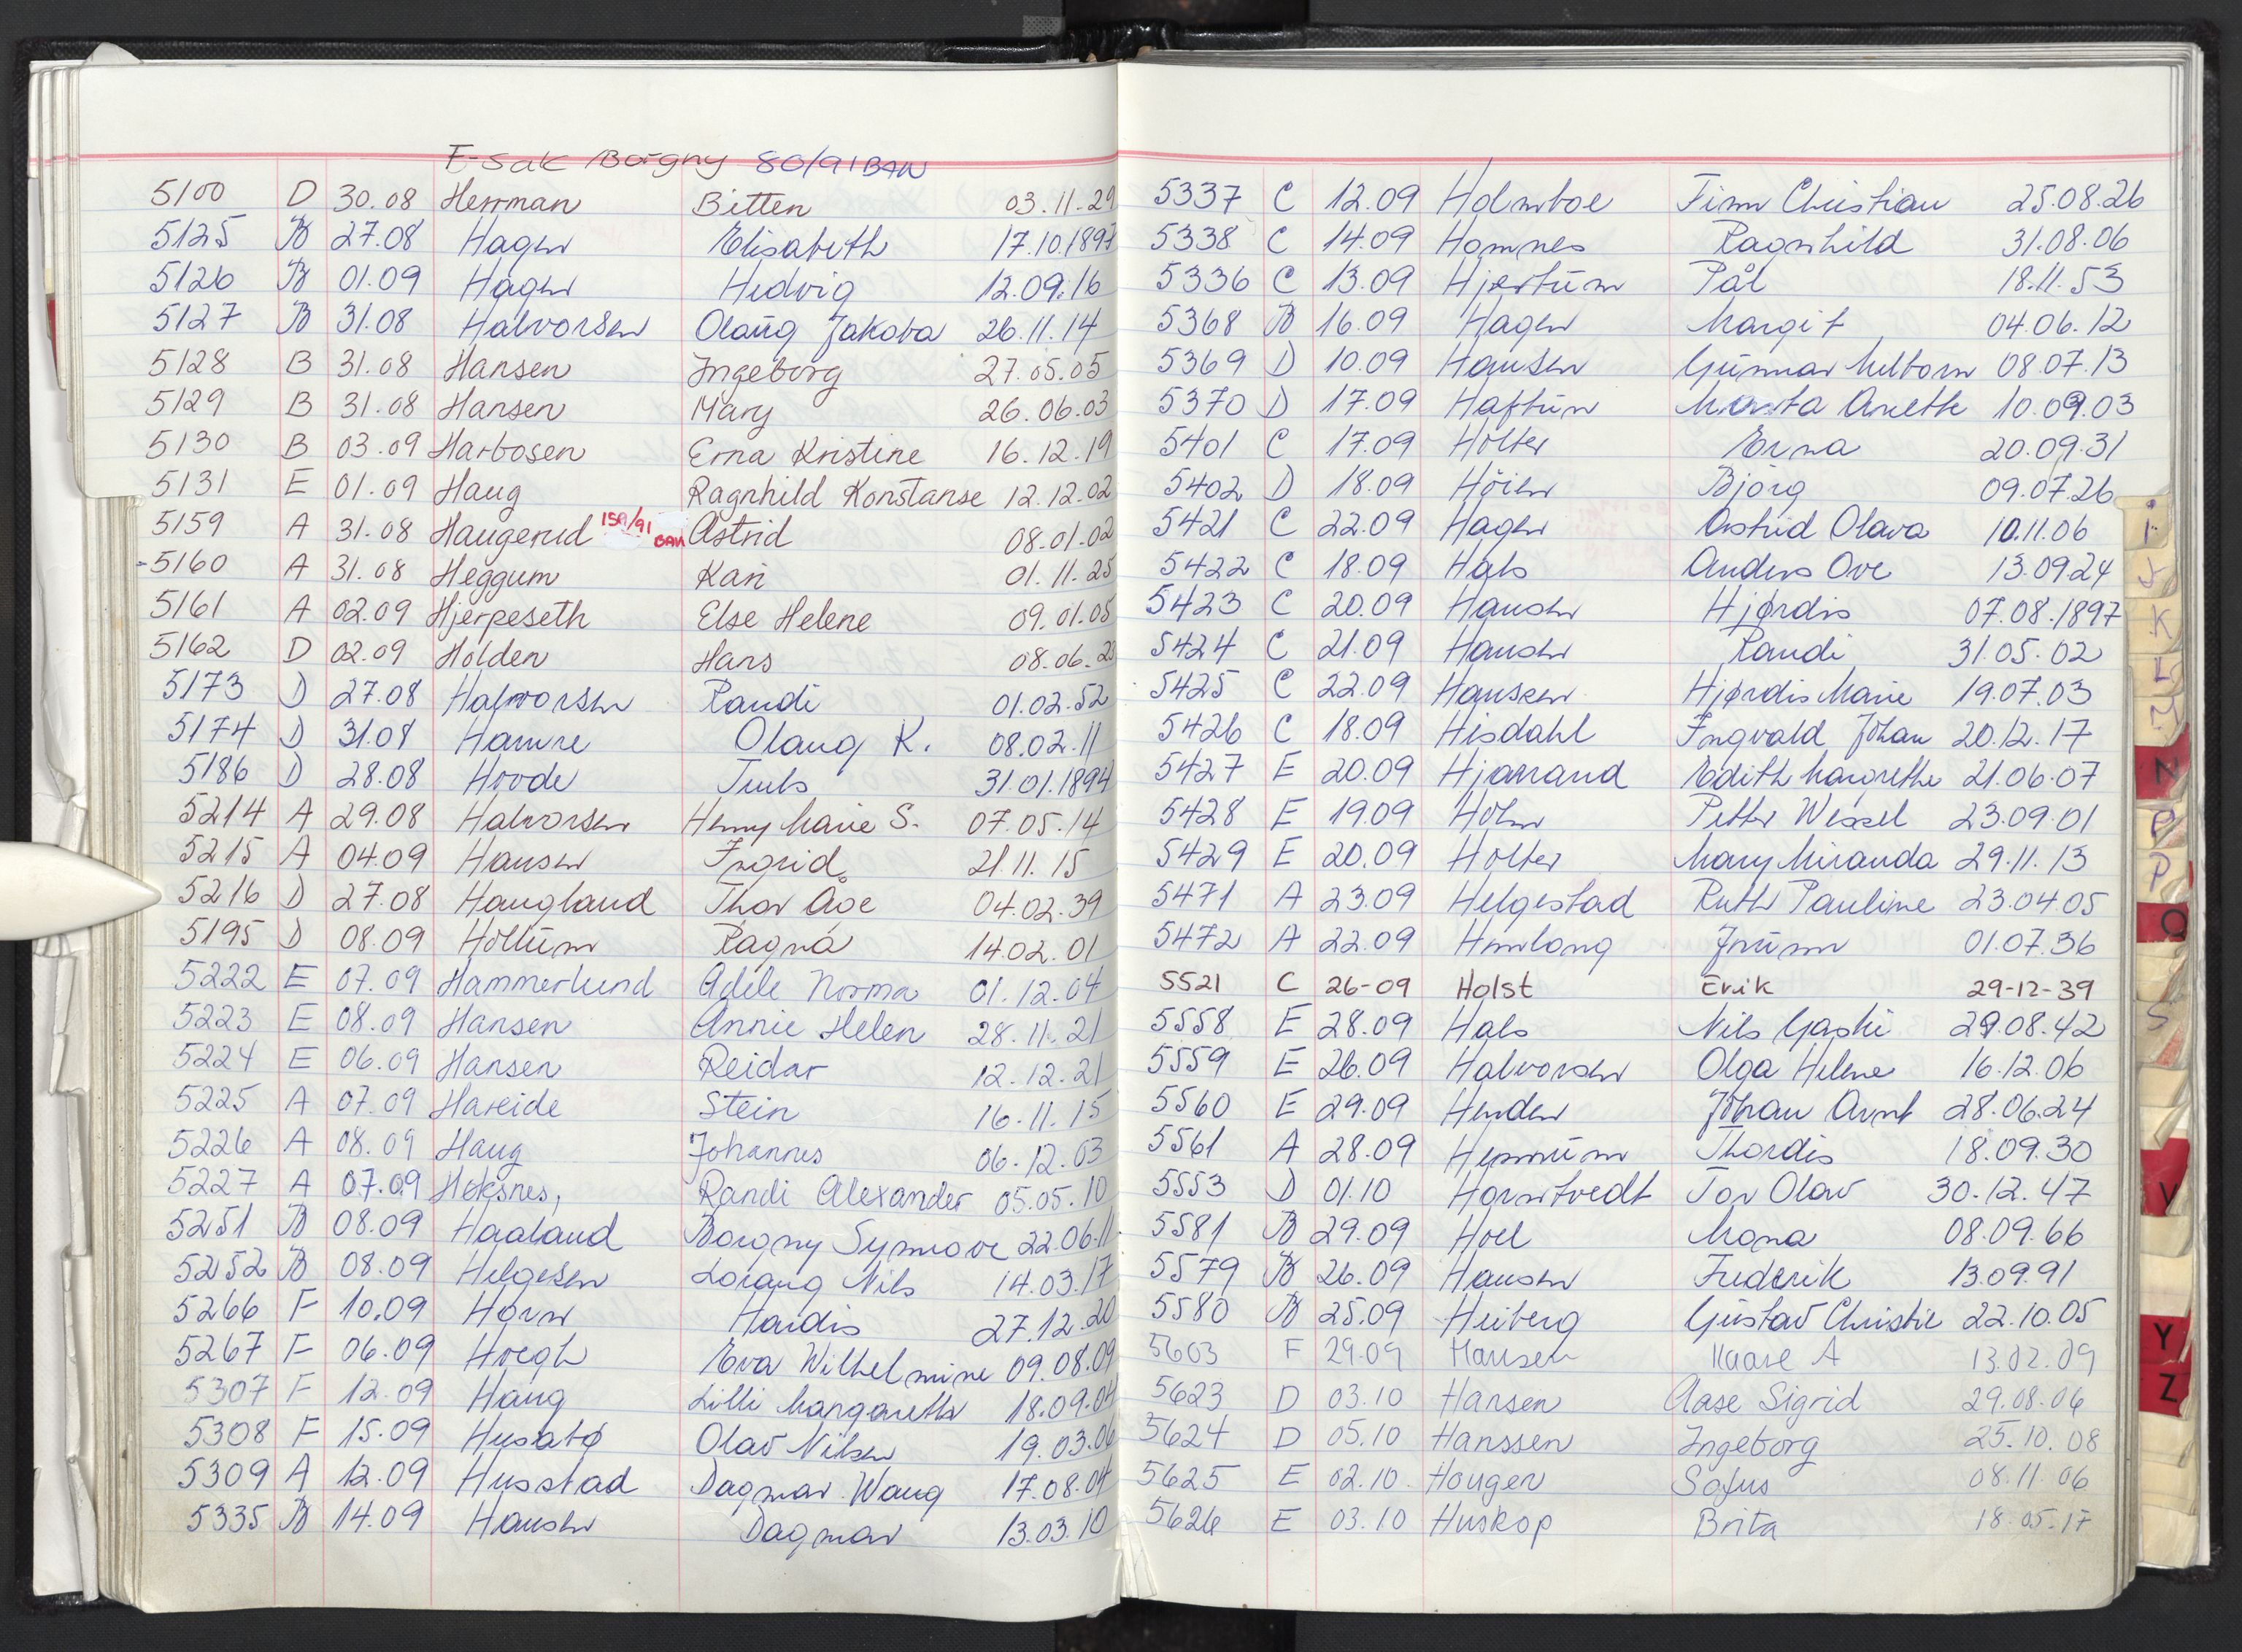 F-sak Borgny 80/91 BAN
5100 D 30.08 Herrman Bitten 03.11.29
5125 B 27.08 Hagen Elisabeth 17.10.1897
5126 B 01.09 Hagen Hedvig 12.09.16
5127 B 31.08 Halvorsen Olaug Jakoba 26.11.14
5128 B 31.08 Hansen Ingeborg 27.05.05
5129 B 31.08 Hansen Mary 26.06.03
5130 B 03.09 Harbosen Erna Kristine 16.12.19
5131 E 01.09 Haug Ragnhild Konstanse 12.12.02
5159 A 31.08 Haugerud 159/91 BAN Astrid 08.01.02
5160 A 31.08 Heggum Kari 01.11.25
5161 A 02.09 Hjerpeseth Else Helene 09.01.05
5162 D 02.09 Holden Hans 08.06.23
5173 D 27.08 Halvorsen Randi 01.02.52
5174 D 31.08 Hamre Olaug K. 08.02.11
5186 D 28.08 Hovde 31.01.1894
5214 A 29.08 Halvorsen Henny Marie S. 07.05.14
5215 A 04.09 Hansen Ingrid 21.11.15
5216 D 27.08 Haugland Thor Åge 04.02.39
5195 D 08.09 Holtum Ragna 14.02.01
5222 E 07.09 Hammerlund Adele Norma 01.12.04
5223 E 08.09 Hansen Annie Helen 28.11.21
5224 E 06.09 Hansen Reidar 12.12.21
5225 A 07.09 Hareide Stein 16.11.15
5226 A 08.09 Haug Johannes 06.12.03
5227 A 07.09 Høksnes, Randi Alexander 05.05.10
5251 B 08.09 Haaland Borgny Synnøve 22.06.11
5252 B 08.09 Helgesen Lorang Nils 14.03.17
5266 F 10.09 Horn Haidis 27.12.20
5267 F 06.09 Hoegh Eva Wilhelmine 09.08.09
5307 F 12.09 Haug Lilli Margarethe 18.09.04
5308 F 15.09 Husabø Olav Nilsen 19.03.06
5309 A 12.09 Husstad Dagmar Waug 17.08.04
5335 B 14.09 Hansen Dagmar 13.03.10
5337 C 12.09 Holmboe Finn Christian 25.08.26
5338 C 14.09 Homnes Ragnhild 31.08.06
5336 C 13.09 Hjertum Pål 18.11.53
5368 B 16.09 Hagen Margit 04.06.12
5369 D 10.09 Hansen Gunnar Melborn 08.07.13
5370 D 17.09 Haftun Marta Anette 10.09.03
5401 C 17.09 Holter Erna 20.09.31
5402 D 18.09 Höien Bjørg 09.07.26
5421 C 22.09 Hagen Astrid Olava 10.11.06
5422 C 18.09 Hals Anders Ove 13.09.24
5423 C 20.09 Hansen Hjørdis 07.08.1897
5424 C 21.09 Hansen Randi 31.05.02
5425 C 22.09 Hansken Hjørdis Marie 19.07.03
5426 C 18.09 Hisdahl Ingvald Johan 20.12.17
5427 E 20.09 Hjarrand Edith Margrethe 21.06.07
5428 E 19.09 Holm Petter Wessel 23.09.01
5429 E 20.09 Holter Mary Miranda 29.11.13
5471 A 23.09 Helgestad Ruth Pauline 23.04.05
5472 A 22.09 Jorunn 01.07.36
5521 C 26-09 Holst Erik 29-12-39
5558 E 28.09 Hals Nils Gaski 29.08.42
5559 E 26.09 Halvorsen Olga Helene 16.12.06
5560 E 29.09 Henden Johan Arnt 28.06.24
5561 A 28.09 Thordis 18.09.30
5553 D 01.10 Horntvedt Tor Olav 30.12.47
5581 B 29.09 Hoel Mona 08.09.66
5579 B 26.09 Hansen Frederik 13.09.91
5580 B 25.09 Heiberg Gustav Christie 22.10.05
5603 F 29.09 Hansen Kaare A 13.02.09
5623 D 03.10 Hansen Aase Sigrid 29.08.06
5624 D 05.10 Hanssen Ingeborg 25.10.08
5625 E 02.10 Haugen Sofus 08.11.06
5626 E 03.10 Huskop Brita 18.05.17
i
J
K
L
N
P
Q
S
V
Y
Z